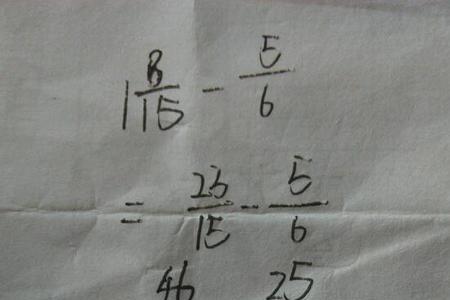 1 8/15 - 5/6
= 23/15 - 5/6
46 25